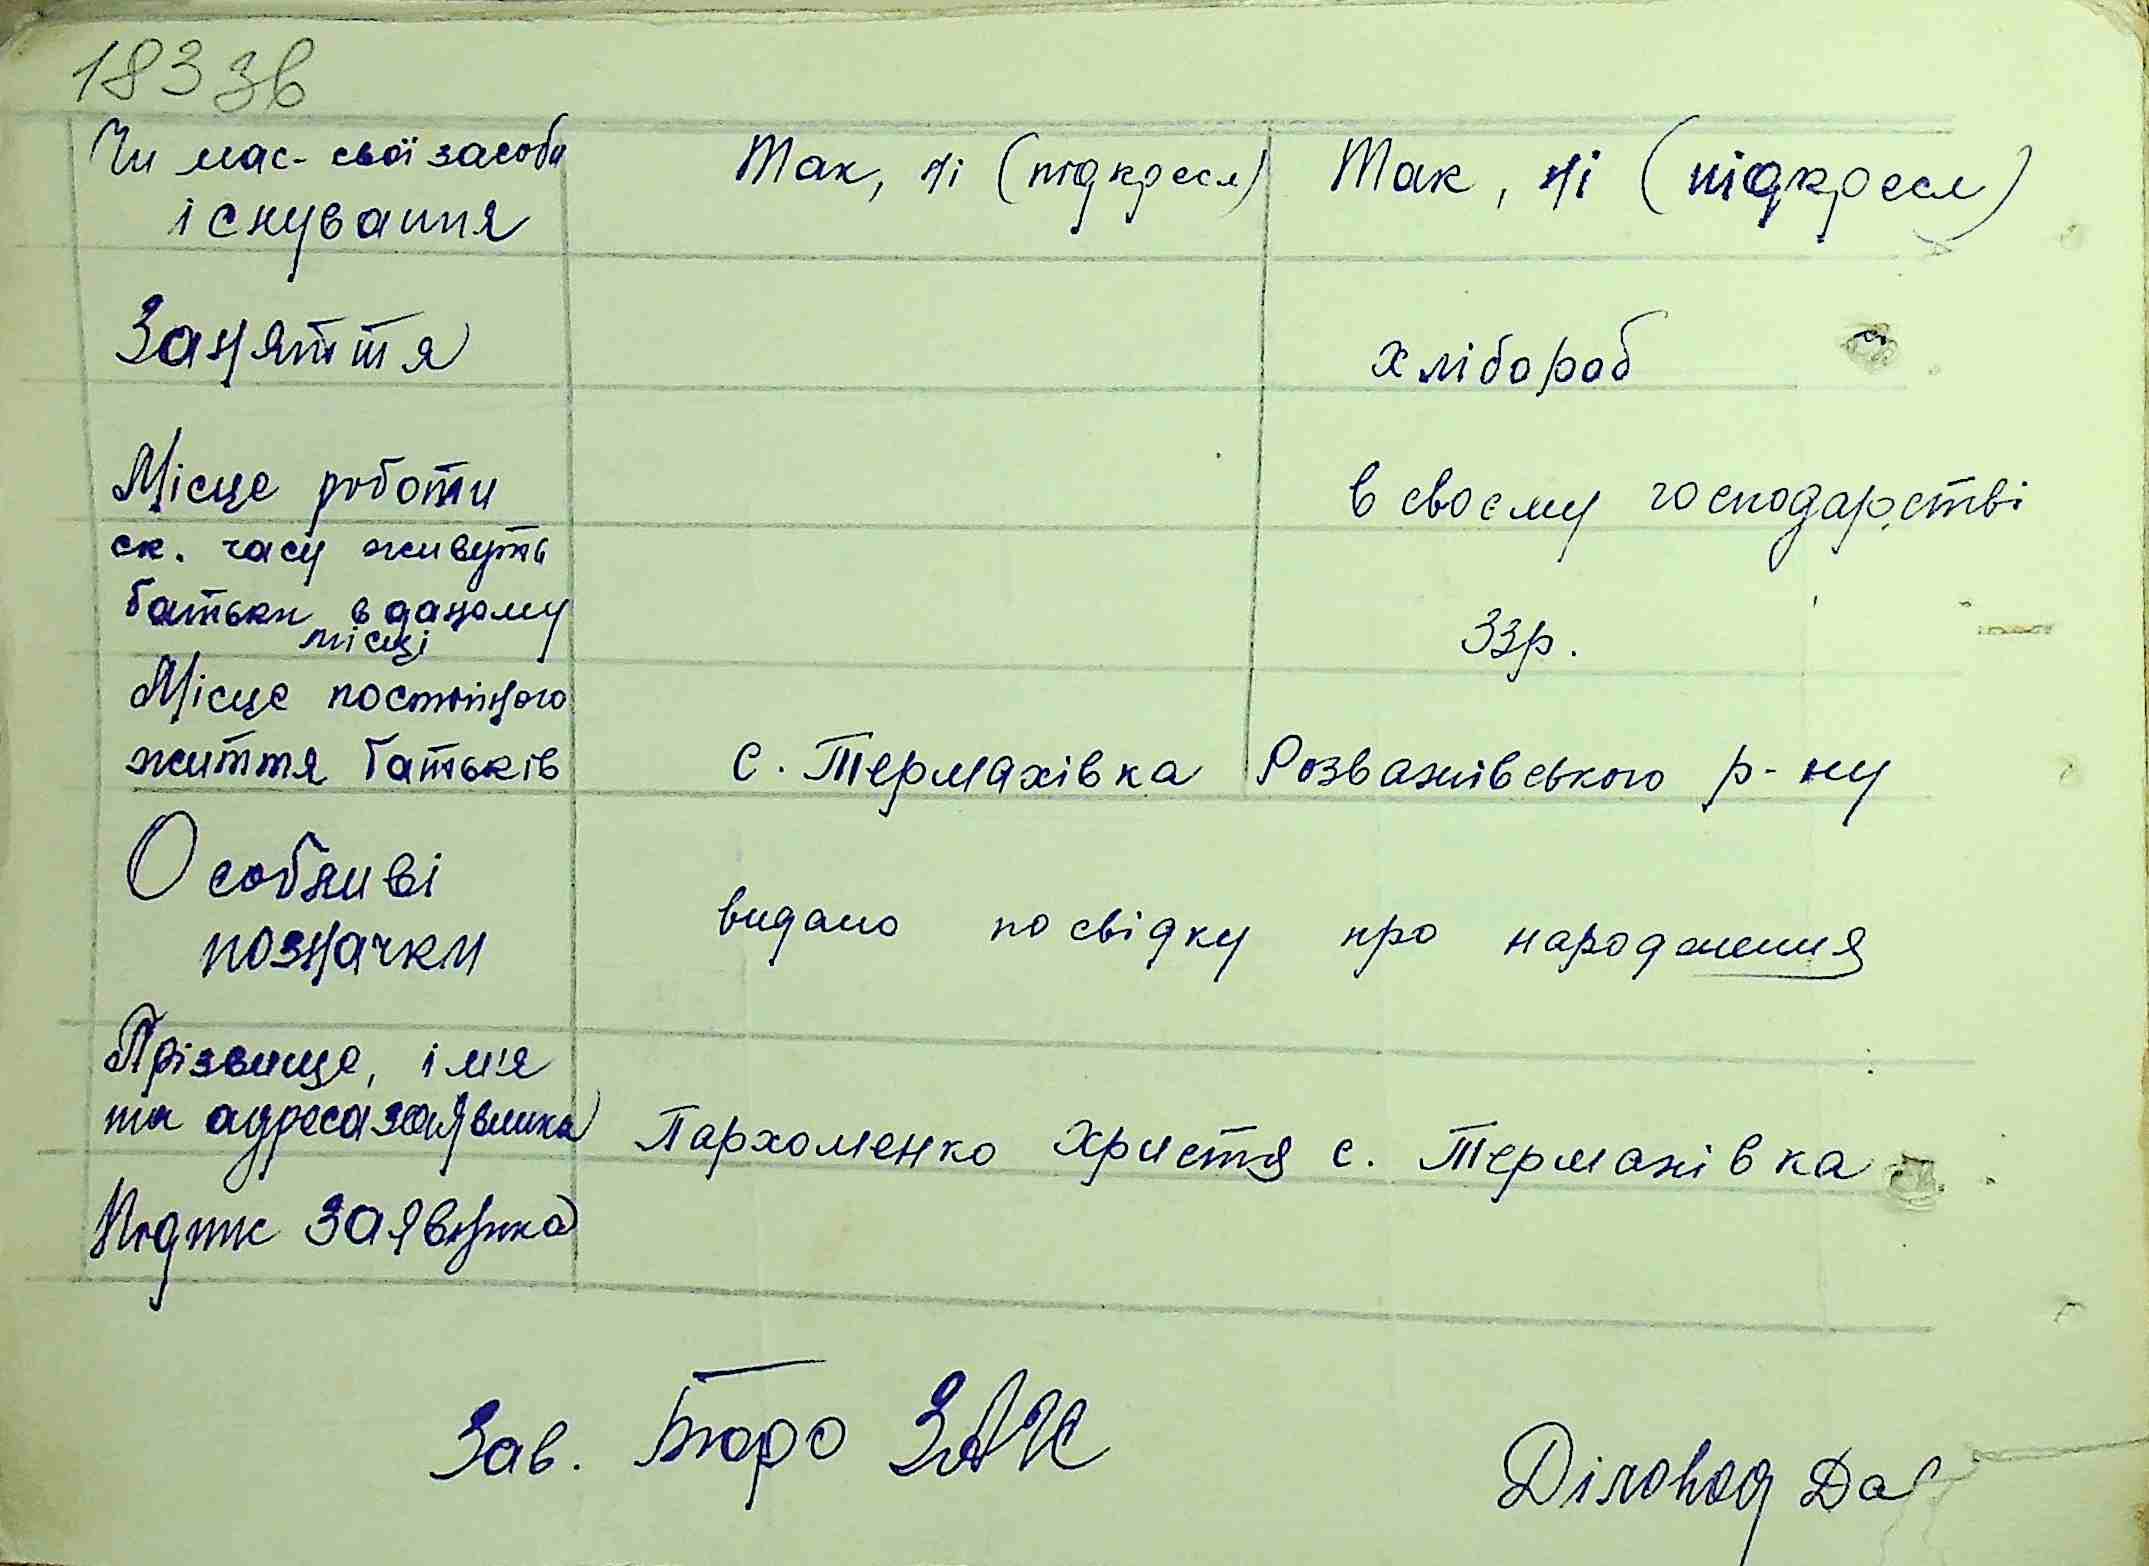 183 зв
Чи має свої засоби
існування
Так, ні (підкресл)
Так, ні (підкресл)
Заняття
хлібороб
Місце роботи
в своєму господарстві
ск. часу живуть
батьки в даному
місці
33р.
Місце постійного
життя батьків
с. Термахівка Розважівського р-ну
Особливі
позначки
видано посвідку про народження
Прізвище, ім'я
та адреса заявника
Пархоменко Христя с. Термахівка
Підпис заявника
Зав. Бюро ЗАГС
Діловод